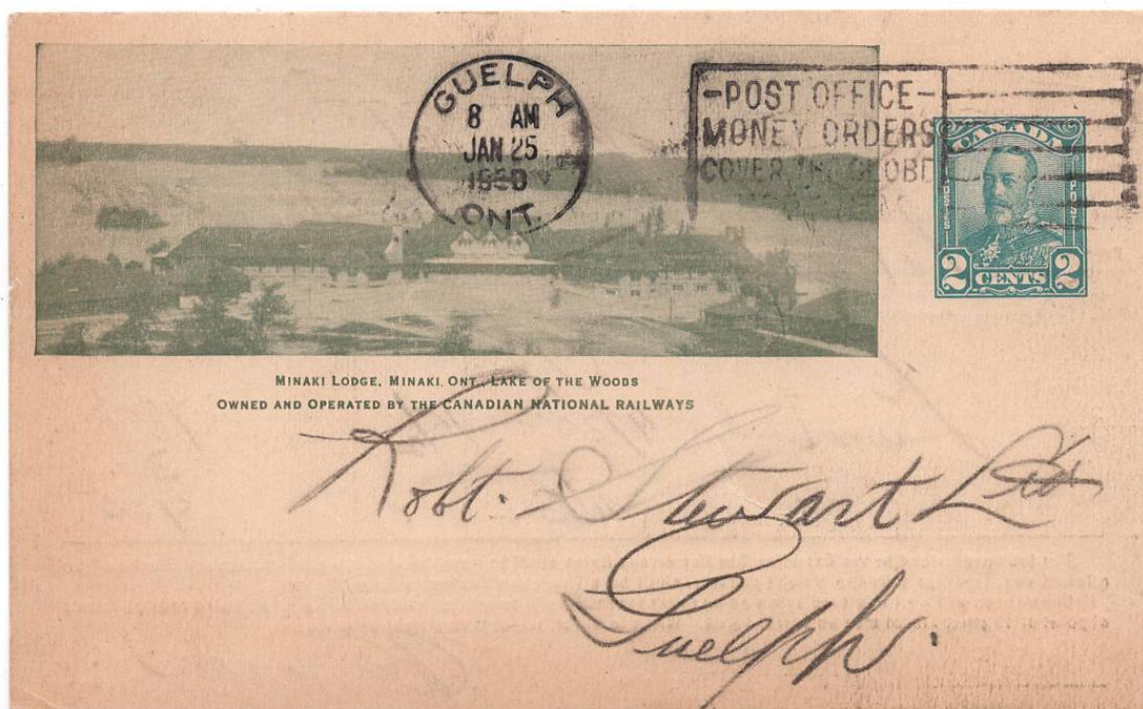 GUELPH
8 AM
JAN 25
ONT.
-POST OFFICE-
MONEY ORDERS
COVER THE GLOBE
CANADA
POSTES POST
2 CENTS 2
MINAKI LODGE, MINAKI, ONT., LAKE OF THE WOODS
OWNED AND OPERATED BY THE CANADIAN NATIONAL RAILWAYS
Robt. Stewart Ltd
Guelph.